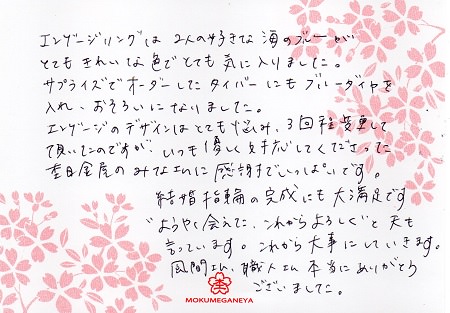 エンゲージリングは 2人の好きな 海のブルーが
とてもきれいな色でとても気に入りました。
サプライズでオーダーしたタイバーにもブルーダイヤを
入れ、おそろいになりました。
エンゲージのデザインはとても悩み、3回程変更して
頂いたのですが、いつも優しく対応してくださった
杢目金屋のみなさんに感謝でいっぱいです。
結婚指輪の完成にも大満足です
"ようやく会えた、これからよろしく"と夫も
言っています。これから大事にしていきます。
風間さん、職人さん本当にありがとう
ございました。
MOKUMEGANEYA